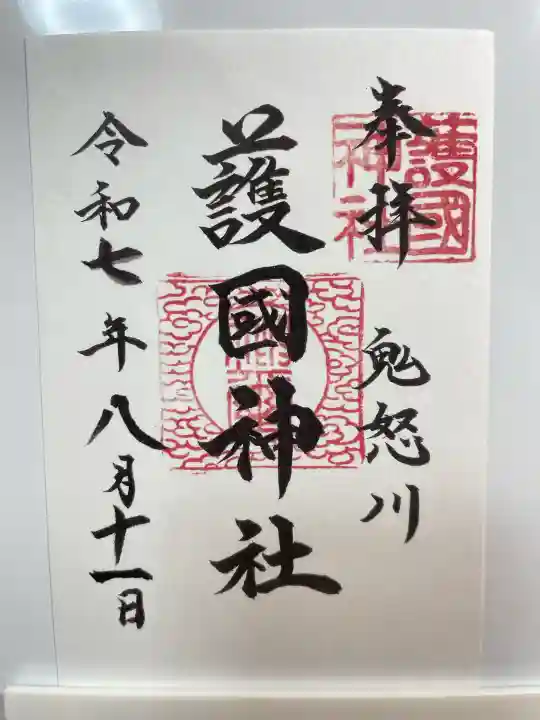 奉拝
鬼怒川
護國神社
令和七年八月十一日
護國
神社